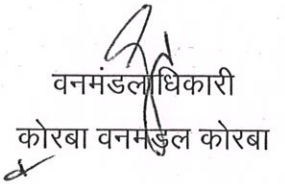 वनमंडलाधिकारी
कोरबा वनमंडल कोरबा